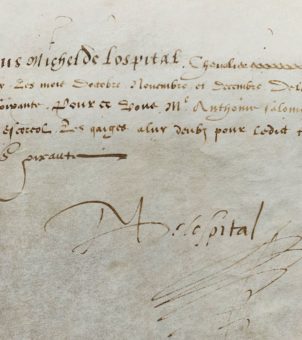 ous Michel de Lospital, Chevalier
les mois doctobre Novembre et decembre De
soixante. Pour ce Vous Mr. Anthoine
Les gaiges a luy deubz pour ledit
soixante
M delospital